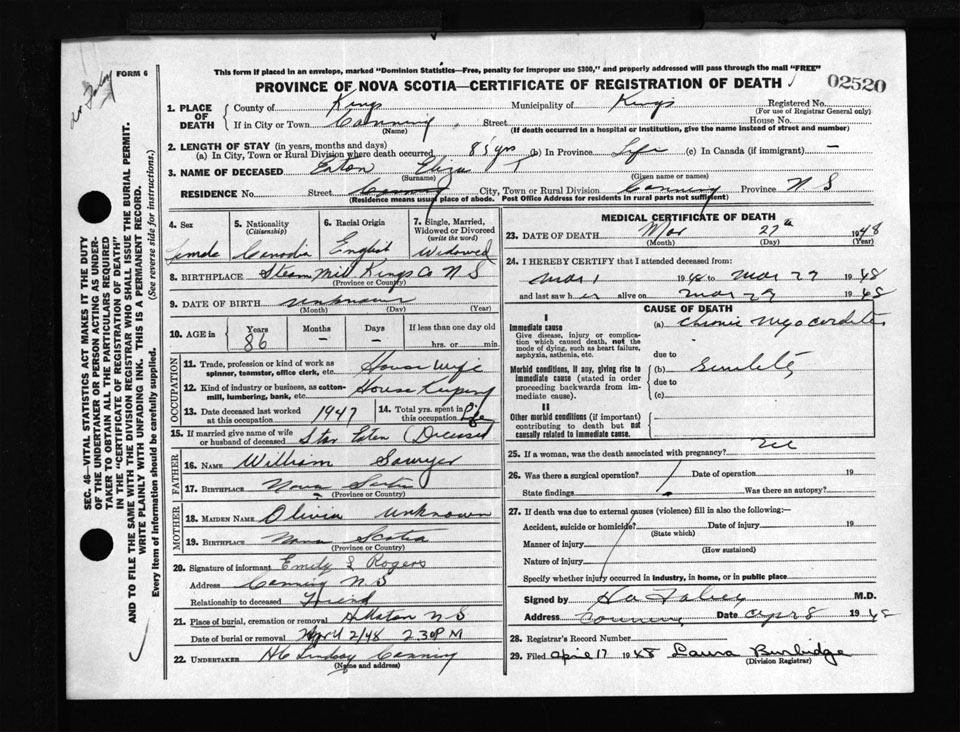 FORM 6
This form if placed in an envelope, marked "Dominion Statistics—Free, penalty for improper use $300," and properly addressed will pass through the mail "FREE"
PROVINCE OF NOVA SCOTIA—CERTIFICATE OF REGISTRATION OF DEATH
02520
1. PLACE OF DEATH
County of Kings Municipality of Kings Registered No.
(For use of Registrar General only)
If in City or Town Canning Street House No.
(Name) (If death occurred in a hospital or institution, give the name instead of street and number)
2. LENGTH OF STAY (in years, months and days)
(a) In City, Town or Rural Division where death occurred 85 yrs (b) In Province Life (c) In Canada (if immigrant) —
3. NAME OF DECEASED Eaton Eliza
(Surname) (Given name or names)
RESIDENCE No. Street Canning City, Town or Rural Division Canning Province N S
(Residence means usual place of abode. Post Office Address for residents in rural parts not sufficient)
4. Sex 5. Nationality (Citizenship) 6. Racial Origin 7. Single, Married, Widowed or Divorced (write the word)
Female Canadia English Widowed
8. BIRTHPLACE Steam Mill Kings Co N S
(Province or Country)
9. DATE OF BIRTH unknown
(Month) (Day) (Year)
10. AGE in Years Months Days If less than one day old
86 — — hrs. or min.
OCCUPATION
11. Trade, profession or kind of work as spinner, teamster, office clerk, etc. House wife
12. Kind of industry or business, as cotton-mill, lumbering, bank, etc. House Keeping
13. Date deceased last worked at this occupation 1947 14. Total yrs. spent in this occupation
15. If married give name of wife or husband of deceased Star Eaten (Deceased
FATHER
16. NAME William Sawyer
17. BIRTHPLACE Nova Scotia
(Province or Country)
MOTHER
18. MAIDEN NAME Olivia unknown
19. BIRTHPLACE Nova Scotia
(Province or Country)
20. Signature of informant Emily L Rogers
Address Canning N.S
Relationship to deceased Friend
21. Place of burial, cremation or removal N S
Date of burial or removal April 2/48 2.30 P M
22. UNDERTAKER H C Lindsay Canning
(Name and address)
MEDICAL CERTIFICATE OF DEATH
23. DATE OF DEATH Mar 27th 1948
(Month) (Day) (Year)
24. I HEREBY CERTIFY that I attended deceased from:
Mar 1 1948 to Mar 29 1948
and last saw her alive on Mar 29 1948
CAUSE OF DEATH
I
Immediate cause
Give disease, injury or complication which caused death, not the mode of dying, such as heart failure, asphyxia, asthenia, etc.
(a) chronic myocarditis
due to
Morbid conditions, if any, giving rise to immediate cause (stated in order proceeding backwards from immediate cause).
(b) Senility
due to
(c)
II
Other morbid conditions (if important) contributing to death but not causally related to immediate cause.
25. If a woman, was the death associated with pregnancy?
26. Was there a surgical operation? Date of operation 19
State findings Was there an autopsy?
27. If death was due to external causes (violence) fill in also the following:—
Accident, suicide or homicide? Date of injury 19
(State which)
Manner of injury
(How sustained)
Nature of injury
Specify whether injury occurred in industry, in home, or in public place
Signed by M.D.
Address Canning Date Apr 8 1948
28. Registrar's Record Number
29. Filed April 17 1948 Laura Burbidge
(Division Registrar)
SEC. 46—VITAL STATISTICS ACT MAKES IT THE DUTY OF THE UNDERTAKER OR PERSON ACTING AS UNDERTAKER TO OBTAIN ALL THE PARTICULARS REQUIRED IN THE "CERTIFICATE OF REGISTRATION OF DEATH" AND TO FILE THE SAME WITH THE DIVISION REGISTRAR WHO SHALL ISSUE THE BURIAL PERMIT.
WRITE PLAINLY WITH UNFADING INK. THIS IS A PERMANENT RECORD.
Every item of information should be carefully supplied. (See reverse side for instructions.)